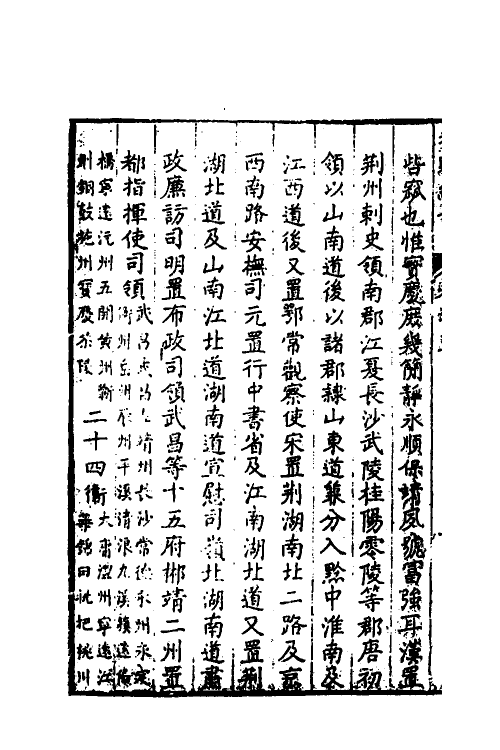 皆寇也惟寶慶庶幾簡靜永順保靖風號富強耳漢置
荊州刺史領南郡江夏長沙武陵桂陽零陵等郡唐初
領以山南道後以諸郡隸山東道兼分入黔中淮南及
江西道後又置鄂常觀察使宋置荊湖南北二路及京
西南路安撫司元置行中書省及江南湖北道又置荊
湖北道及山南江北道湖南道宣慰司嶺北湖南道肅
政廉訪司明置布政司領武昌等十五府郴靖二州置
都指揮使司領武昌武昌左靖州長沙常德永州永定
衡州岳州辰州平溪清浪九溪鎮遠偏
橋寧遠沅州五開黃州蘄
州銅鼓施州寶慶茶陵二十四衛大庸澧州寧遠江
華錦田枇杷桃川